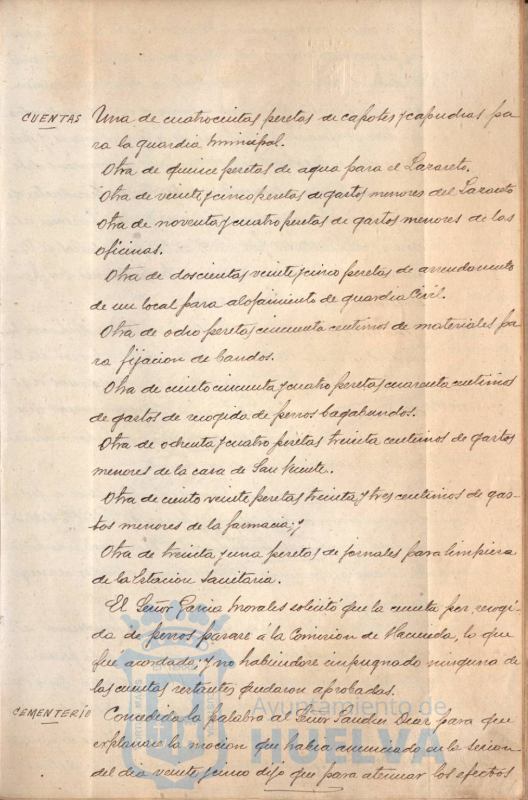 CUENTAS Una de cuatrocientas pesetas de capotes y capuchas pa
ra la guardia municipal.
Otra de quince pesetas de agua para el Lazareto.
Otra de veinte y cinco pesetas de gastos menores del Lazareto
Otra de noventa y cuatro pesetas de gastos menores de las
oficinas.
Otra de doscientas veinte y cinco pesetas de arrendamiento
de un local para alojamiento de guardia Civil.
Otra de ocho pesetas cincuenta centimos de materiales pa
ra fijacion de bandos.
Otra de ciento cincuenta y cuatro pesetas cuarenta centimos
de gastos de recogida de perros bagabundos.
Otra de ochenta y cuatro pesetas treinta centimos de gastos
menores de la casa de San Vicente.
Otra de ciento veinte pesetas treinta y tres centimos de gas-
tos menores de la farmacia; y
Otra de treinta y una pesetas de jornales para limpiera
de la Estacion Sanitaria.
El Señor Garcia Morales solicitó que la cuenta por recogi
da de perros pasase á la Comision de Hacienda, lo que
fué acordado; y no habiendose impugnado ninguna de
las cuentas restantes quedaron aprobadas.
CEMENTERIO Concedida la palabra al Señor Sanchez Diaz para que
explanase la mocion que habia anunciado en la sesion
del dia veinte y cinco dijo que para atenuar los efectos
Ayuntamiento de
HUELVA